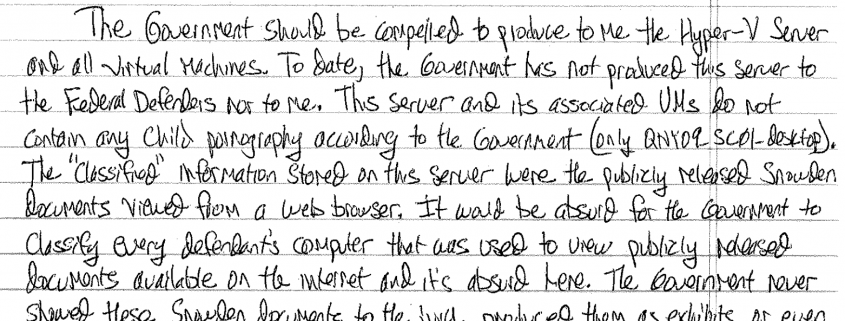 The Government should be compelled to produce to me the Hyper-V Server
and all virtual machines. To date, the Government has not produced this server to
the Federal Defenders nor to me. This server and its associated VMs do not
contain any child pornography according to the Government (only QNY09_SC01-desktop).
The "Classified" information stored on this server were the publicly released Snowden
documents viewed from a web browser. It would be absurd for the Government to
classify every defendant's computer that was used to view publicly released
documents available on the internet and it's absurd here. The Government never
showed these Snowden documents to the jury, produced them as exhibits or even